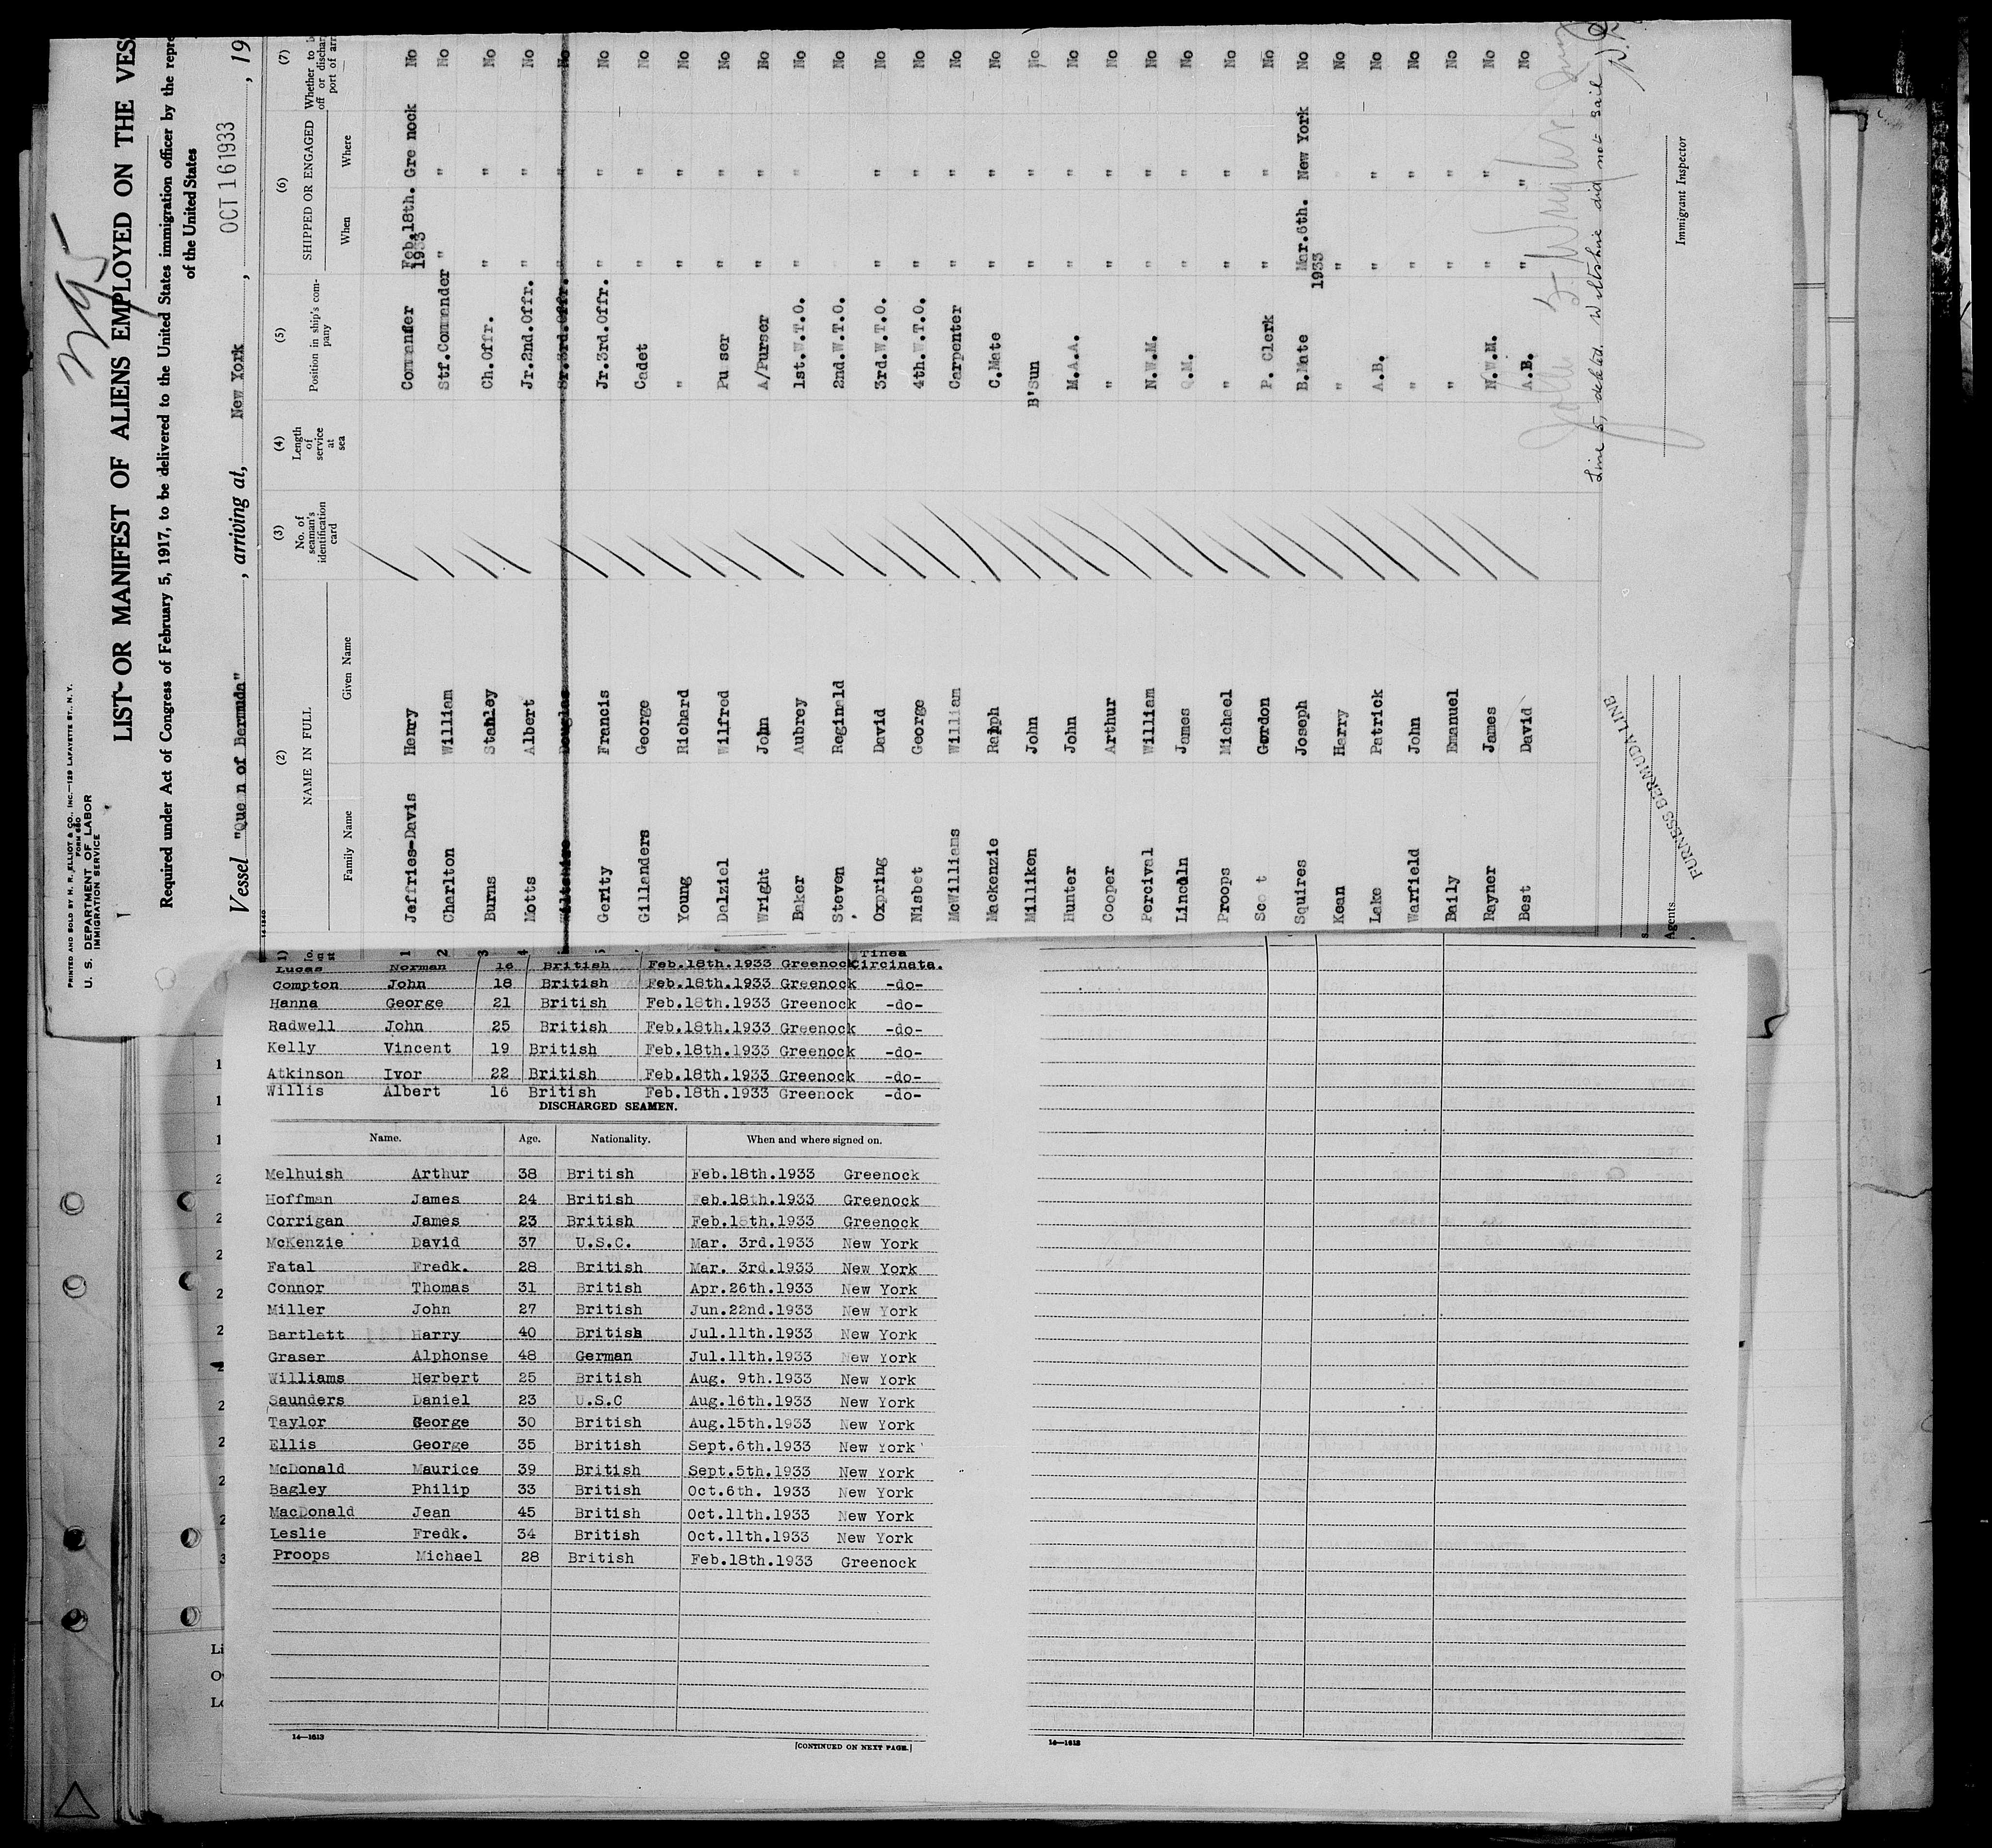 295
PRINTED AND SOLD BY H. R. ELLIOT & CO., INC.—129 LAFAYETTE ST., N.Y.
FORM 680
U. S. DEPARTMENT OF LABOR
IMMIGRATION SERVICE
LIST OR MANIFEST OF ALIENS EMPLOYED ON THE VES
Required under Act of Congress of February 5, 1917, to be delivered to the United States immigration officer by the repre
of the United States
Vessel "Que n of Bermuda" , arriving at, New York , OCT 16 1933 , 19
(2) (3) (4) (5) (6) (7)
NAME IN FULL No. of seaman's identification card Length of service at sea Position in ship's company SHIPPED OR ENGAGED Whether to b off or dischar port of arr
Family Name Given Name When Where
1 Jeffries-Davis Henry Commander Feb.18th. 1933 Gre nock No
2 Charlton William Stf.Commander " " No
3 Burns Stanley Ch.Offr. " " No
4 Motts Albert Jr.2nd.Offr. " " No
Wiltshire Douglas Sr.3rd.Offr. " " No
5 Gerity Francis Jr.3rd.Offr. " " No
Gillanders George Cadet " " No
Young Richard " " " No
Dalziel Wilfred Pu ser " " No
Wright John A/Purser " " No
Baker Aubrey 1st.W.T.O. " " No
Steven Reginald 2nd.W.T.O. No
Oxpring David 3rd.W.T.O. " " No
Nisbet George 4th.W.T.O. " " No
McWilliams William Carpenter " " No
Mackenzie Ralph C.Mate " " No
Milliken John B'Sun " " No
Hunter John M.A.A. " " No
Cooper Arthur " " " No
Percival William N.W.M. " " No
Lincoln James Q.M. " " No
Proops Michael " " " No
Sco t Gordon P. Clerk " " No
Squires Joseph B.Mate Mar.6th. 1933 New York No
Kean Harry " " No
Lake Patrick A.B. " " No
Warfield John " " " No
Baily Emanuel " " " No
Rayner James N.W.M. " " No
Best David A.B. " " No
Line 5, deleted. Wiltshire did not sail
FURNESS BERMUDA LINE
Agents
Immigrant Inspector
Lucas Norman 16 British Feb.18th.1933 Greenock Tinea Circinata.
Compton John 18 British Feb.18th.1933 Greenock -do-
Hanna George 21 British Feb.18th.1933 Greenock -do-
Radwell John 25 British Feb.18th.1933 Greenock -do-
Kelly Vincent 19 British Feb.18th.1933 Greenock -do-
Atkinson Ivor 22 British Feb.18th.1933 Greenock -do-
Willis Albert 16 British Feb.18th.1933 Greenock -do-
DISCHARGED SEAMEN.
Name. Age. Nationality. When and where signed on.
Melhuish Arthur 38 British Feb.18th.1933 Greenock
Hoffman James 24 British Feb.18th.1933 Greenock
Corrigan James 23 British Feb.18th.1933 Greenock
McKenzie David 37 U.S.C. Mar. 3rd.1933 New York
Fatal Fredk. 28 British Mar. 3rd.1933 New York
Connor Thomas 31 British Apr.26th.1933 New York
Miller John 27 British Jun.22nd.1933 New York
Bartlett Harry 40 British Jul.11th.1933 New York
Graser Alphonse 48 German Jul.11th.1933 New York
Williams Herbert 25 British Aug. 9th.1933 New York
Saunders Daniel 23 U.S.C Aug.16th.1933 New York
Taylor George 30 British Aug.15th.1933 New York
Ellis George 35 British Sept.6th.1933 New York
McDonald Maurice 39 British Sept.5th.1933 New York
Bagley Philip 33 British Oct.6th. 1933 New York
MacDonald Jean 45 British Oct.11th.1933 New York
Leslie Fredk. 34 British Oct.11th.1933 New York
Proops Michael 28 British Feb.18th.1933 Greenock
14—1613
[CONTINUED ON NEXT PAGE.]
14—1613